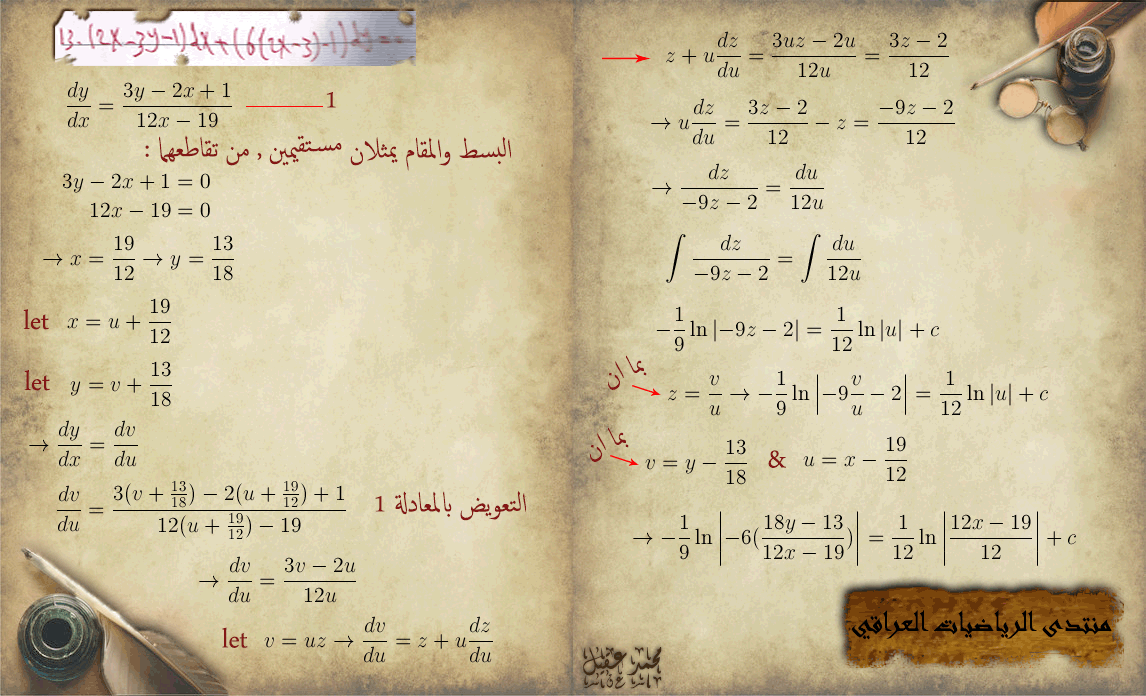 13. (2x-3y-1)dx + (6(2x-3)-1)dy = 0
dy/dx = (3y − 2x + 1)/(12x − 19) ——— 1
البسط والمقام يمثلان مستقيمين , من تقاطعهما :
3y − 2x + 1 = 0
12x − 19 = 0
→ x = 19/12 → y = 13/18
let x = u + 19/12
let y = v + 13/18
→ dy/dx = dv/du
dv/du = (3(v + 13/18) − 2(u + 19/12) + 1)/(12(u + 19/12) − 19) التعويض بالمعادلة 1
→ dv/du = (3v − 2u)/12u
let v = uz → dv/du = z + u dz/du
→ z + u dz/du = (3uz − 2u)/12u = (3z − 2)/12
→ u dz/du = (3z − 2)/12 − z = (−9z − 2)/12
→ dz/(−9z − 2) = du/12u
∫ dz/(−9z − 2) = ∫ du/12u
−1/9 ln |−9z − 2| = 1/12 ln |u| + c
بما ان → z = v/u → −1/9 ln |−9 v/u − 2| = 1/12 ln |u| + c
بما ان → v = y − 13/18 & u = x − 19/12
→ −1/9 ln |−6((18y − 13)/(12x − 19))| = 1/12 ln |(12x − 19)/12| + c
منتدى الرياضيات العراقي
محمد عقيل